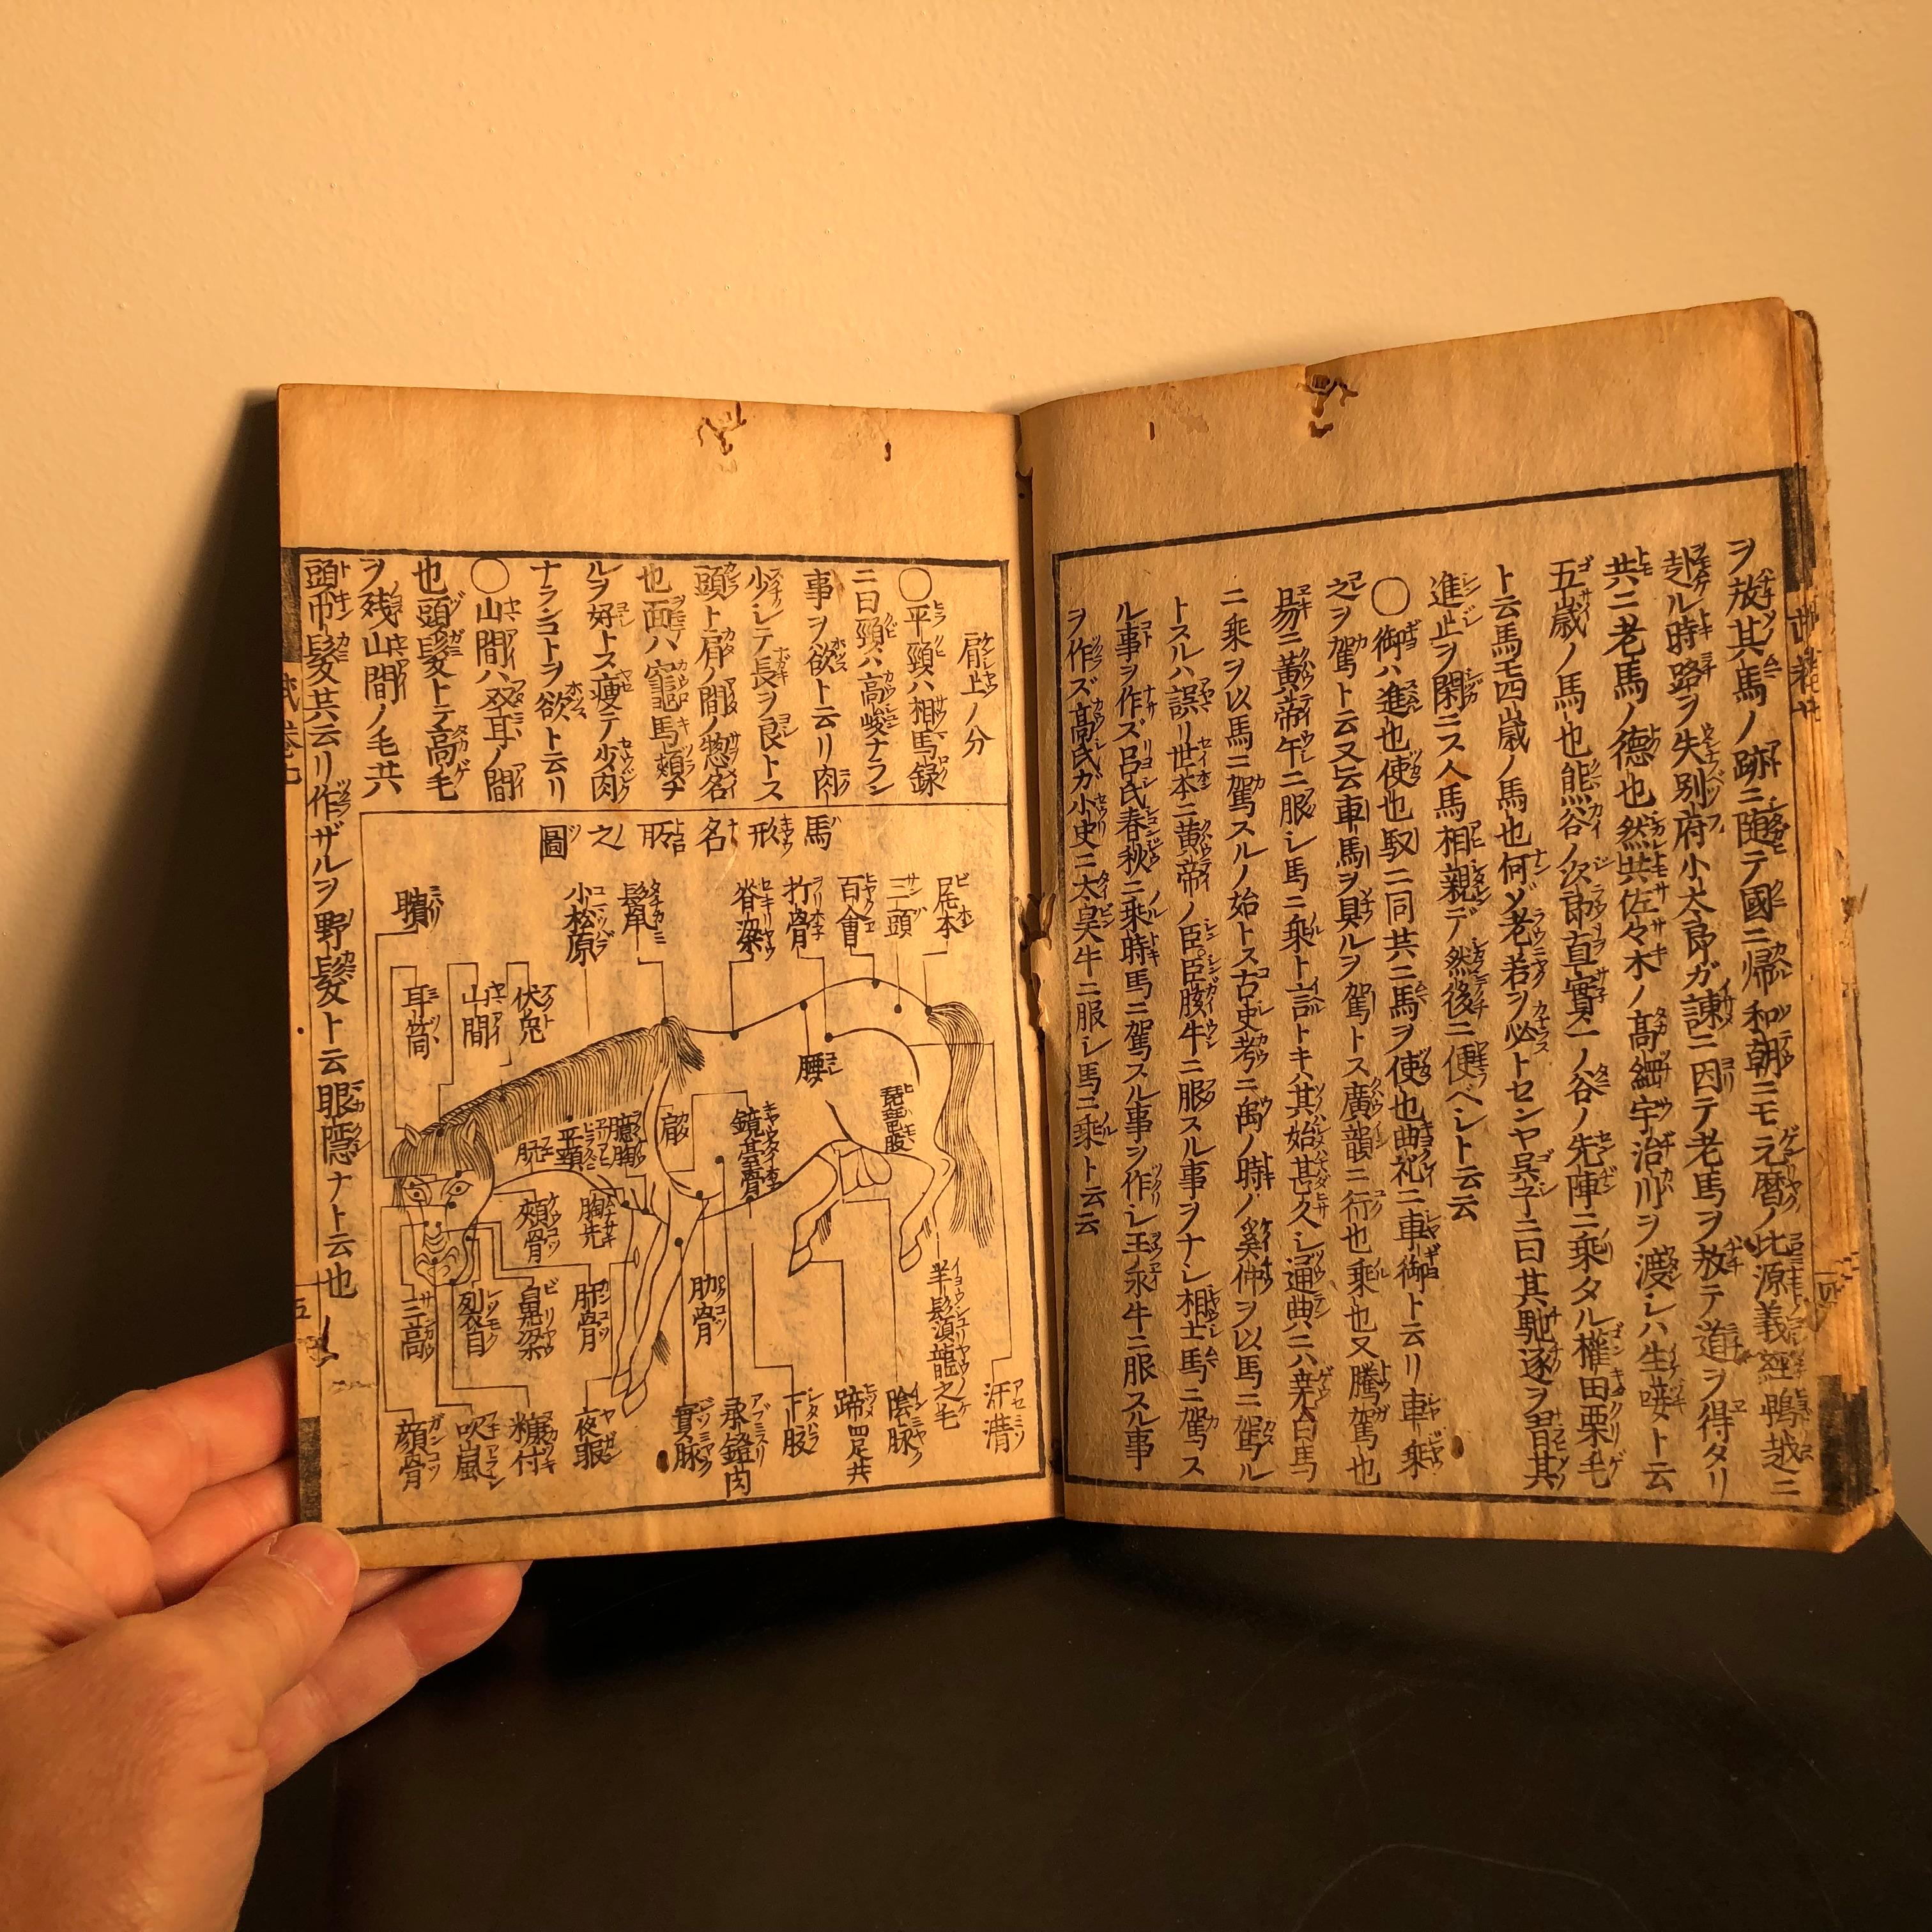 ヲ放其馬ノ跡ニ随テ國ニ帰和朝ニモ元暦ノ比源義經鵯越ニ
赴ル時路ヲ失別府小太郎ガ諌ニ因テ老馬ヲ放テ道ヲ得タリ
共ニ老馬ノ徳也然共佐々木ノ高綱宇治川ヲ渡シハ生唼ト云
五歳ノ馬也熊谷ノ次郎直實一ノ谷ノ先陣ニ乗タル權田栗毛
ト云馬モ四歳ノ馬也何ゾ老若ヲ必トセンヤ呉子ニ曰其馳逐ヲ習其
進止ヲ閑ニス人馬相親デ然後ニ便ヘシト云云
〇御ハ進也使也馭ニ同共ニ馬ヲ使也曲礼ニ車御ト云リ車乗
之ヲ駕ト云又云車馬ヲ具ルヲ駕トス廣韻ニ行也乗也又騰駕也
易ニ黄帝牛ニ服シ馬ニ乗ト言トキハ其始甚久シ通典ニハ
ニ乗ヲ以馬ニ駕スルノ始トス古史考ニ禹ノ時ノ奚仲ヲ以馬ニ駕ル
トスルハ誤リ世本ニ黄帝ノ臣臣胲牛ニ服スル事ヲナシ相士馬ニ駕ス
ル事ヲ作ズ呂氏春秋ニ乗時馬ニ駕スル事ヲ作シ王氷牛ニ服スル事
ヲ作ズ高氏ガ小史ニ太昊牛ニ服シ馬ニ乗ト云云
肩上ノ分
〇平頸ハ相馬録
ニ曰頸ハ高峻ナラン
事ヲ欲ト云リ肉
少シテ長ヲ良トス
頭ト肩ノ間ノ惣名
也面ハ竈馬頬ヂ
ルヲ好トス痩テ少肉
ナランコトヲ欲ト云リ
〇山間ハ双耳ノ間
也頭髪トテ高毛
ヲ残山間ノ毛共
頭巾髪共云リ作ザルヲ野髪ト云眼隱ナト云也
馬形名所之圖
尾本
三頭
百會
折骨
脊梁
小松原
伏兎
山間
耳筒
腰
琵琶股
鏡臺骨
肩
臆胸
平頸
胸先
頬骨
肋骨
鼻梁
列自
三高
汗溝
羊鬚須龍之毛
陰脉
蹄四足共
下腹
承鐙肉
實脉
夜眼
糠付
吹嵐
顔骨
五